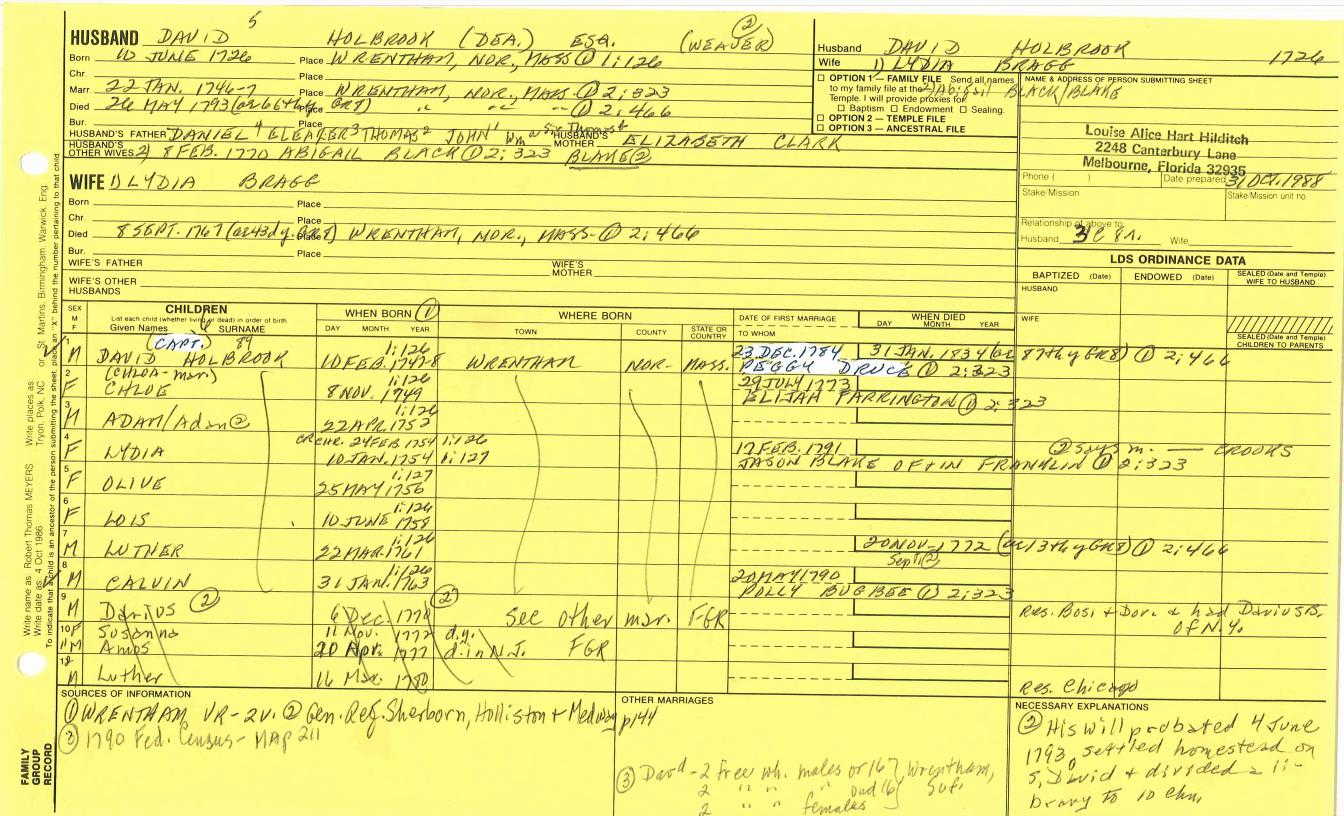 5
HUSBAND DAVID HOLBROOK (DEA.) ESQ. (WEAVER) ②
Born 10 JUNE 1726 Place WRENTHAM, NOR., MASS ① 1:126
Chr. Place
Marr 22 JAN. 1746-7 Place WRENTHAM, NOR., MASS ① 2:323
Died 26 MAY 1793 (ae 66th y GR7) Place " " " ① 2:466
Bur.
HUSBAND'S FATHER DANIEL⁴ ELEAZER³ THOMAS² JOHN¹ HUSBAND'S MOTHER ELIZABETH CLARK
HUSBAND'S OTHER WIVES 2) 8 FEB. 1770 ABIGAIL BLACK ① 2:323 BLAKE ②
Husband DAVID HOLBROOK 1726
Wife 1) LYDIA BRAGG
2) Abigail BLACK/BLAKE
OPTION 1 — FAMILY FILE Send all names
to my family file at the
Temple. I will provide proxies for
Baptism Endowment Sealing.
OPTION 2 — TEMPLE FILE
OPTION 3 — ANCESTRAL FILE
NAME & ADDRESS OF PERSON SUBMITTING SHEET
Louise Alice Hart Hilditch
2248 Canterbury Lane
Melbourne, Florida 32935
Phone ( ) Date prepared 31 OCT. 1988
Stake/Mission Stake/Mission unit no.
Relationship of above to:
Husband 3C 8r. Wife
WIFE 1) LYDIA BRAGG
Born Place
Chr. Place
Died 8 SEPT. 1767 (ae 43d y. GR7) Place WRENTHAM, NOR., MASS- ① 2:466
Bur. Place
WIFE'S FATHER WIFE'S MOTHER
WIFE'S OTHER HUSBANDS
LDS ORDINANCE DATA
BAPTIZED (Date) ENDOWED (Date) SEALED (Date and Temple) WIFE TO HUSBAND
HUSBAND
WIFE
SEALED (Date and Temple) CHILDREN TO PARENTS
SEX M F CHILDREN WHEN BORN ① WHERE BORN DATE OF FIRST MARRIAGE WHEN DIED
List each child (whether living or dead) in order of birth
Given Names SURNAME DAY MONTH YEAR TOWN COUNTY STATE OR COUNTRY TO WHOM DAY MONTH YEAR
1 M (CAPT.) DAVID HOLBROOK 1:126 10 FEB. 1747/8 WRENTHAM NOR- MASS. 23 DEC. 1784 PEGGY DRUCE ① 2:323 31 JAN. 1834 (ae 87th y GR8) ① 2:466
2 F (CHLOA-mar) CHLOE 1:126 8 NOV. 1749 29 JULY 1773 ELIJAH FARRINGTON ① 2:323
3 M ADAM/Adan ② 1:126 22 APR. 1752
4 F LYDIA or CHR. 24 FEB. 1754 1:126 10 JAN. 1754 1:127 17 FEB. 1791 JASON BLAKE OF + IN FRANKLIN ① 2:323 ② says m. — CROOKS
5 F OLIVE 1:127 25 MAY 1756
6 F LOIS 1:126 10 JUNE 1758
7 M LUTHER 1:126 22 MAR. 1761 20 NOV- 1772 (ae 13th y GR8) ① 2:466 Sept. ②
8 M CALVIN 1:126 31 JAN. 1763 20 MAY 1790 POLLY BUGBEE ① 2:323
9 M Darius ② 6 Dec. 1770 ② See other mar. FGR Res. Bos. + Dor. & had Darius B. of N.Y.
10 F Susanna 11 Nov. 1772 d.y.
11 M Amos 20 Apr. 1777 d. in N.J. FGR
12 M Luther 16 Mar. 1780 Res. Chicago
SOURCES OF INFORMATION
① WRENTHAM VR-2v. ② Gen. Reg. Sherborn, Holliston + Medway p144
③ 1790 Fed. Census- MAP 211
OTHER MARRIAGES
③ David - 2 free wh. males of 16+, Wrentham,
2 " " " und 16 Suf.
2 " " females
NECESSARY EXPLANATIONS
② His will probated 4 June
1793, settled homestead on
s, David + divided a li-
brary to 10 chn.
Write name as Robert Thomas MEYERS Write places as Tryon, Polk, NC or St. Martins, Birmingham, Warwick, Eng.
Write date as 4 Oct 1986
To indicate that a child is an ancestor of the person submitting the sheet, place an "X" behind the number pertaining to that child
FAMILY GROUP RECORD